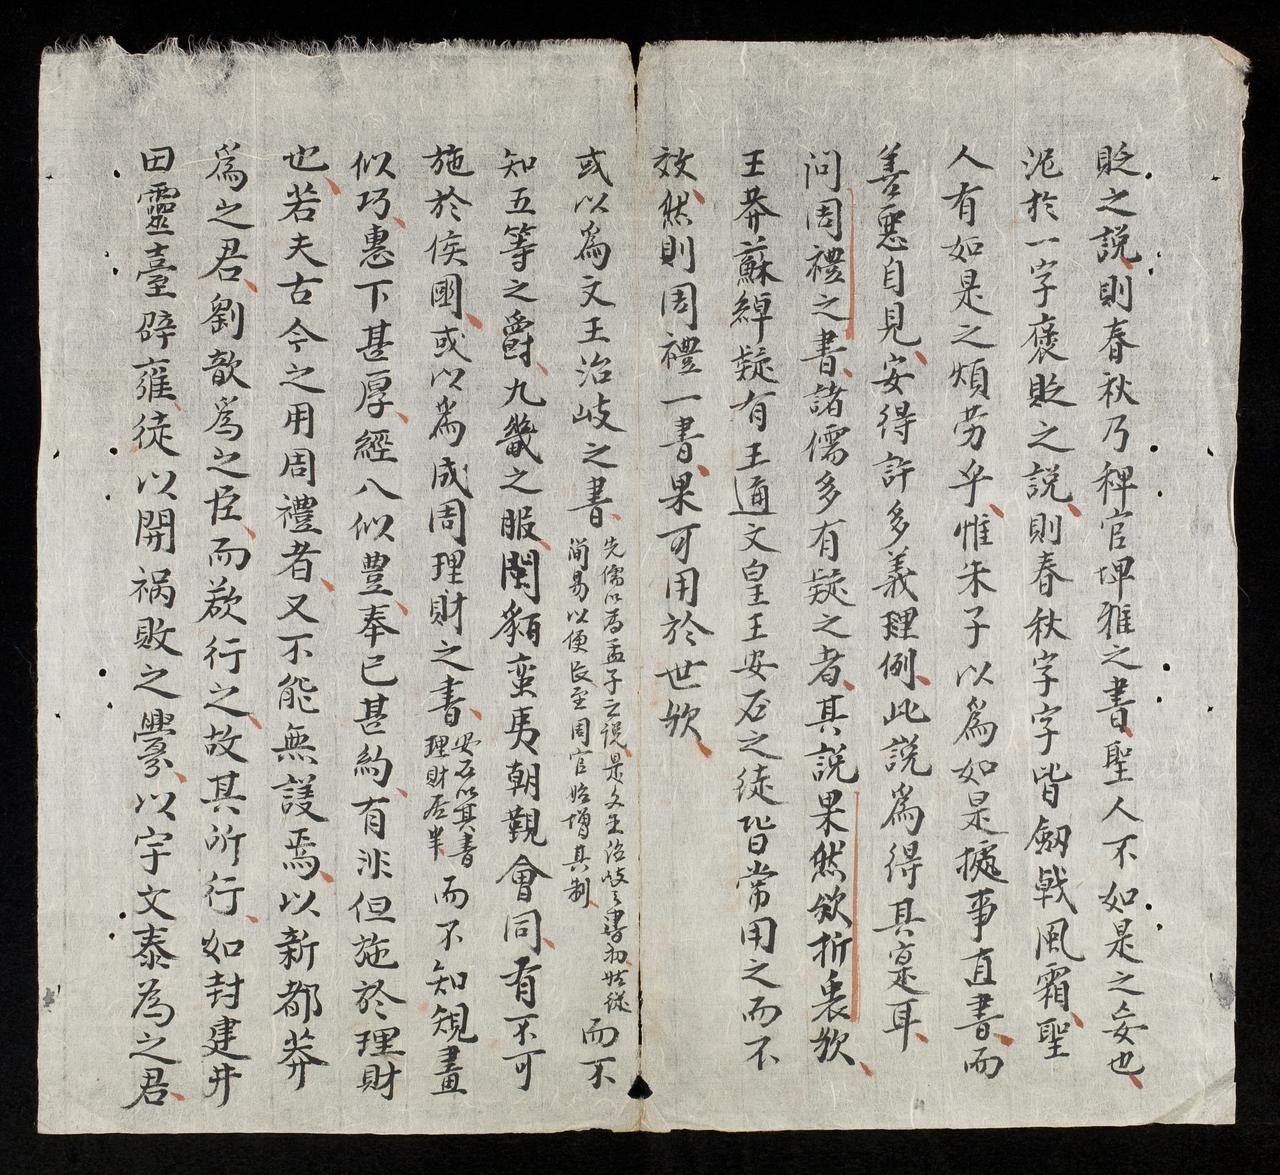 貶之説則春秋乃稗官埤雅之書聖人不如是之妄也
泥於一字褒貶之説則春秋字字皆劔戟風霜聖
人有如是之煩劳乎惟朱子以為如是擄事直書而
善惡自見安得許多義理例此説為得其寔耳
问周禮之書諸儒多有疑之者其説果然欤折衷欤
王莽蘇綽疑有王通文皇王安石之徒皆常用之而不
效然則周禮一書果可用於世欤
或以為文王治岐之書先儒以為孟子之説是文王治岐之書初姑從簡易以便民至周官始增其制而不
知五等之爵九畿之服閩貊蛮夷朝覲會同有不可
施於侯國或以為成周理財之書安石以其書理財居半而不知規畫
似巧惠下甚厚經入似豊奉已甚約有非但施於理財
也若夫古今之用周禮者又不能無議焉以新都莽
為之君劉歆為之臣而欲行之故其所行如封建井
田靈臺辟雍徒以開禍敗之釁以宇文泰為之君